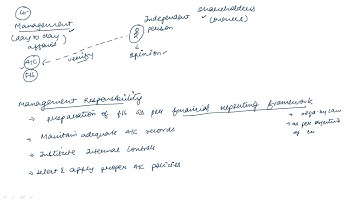 Co.
Management
(day to day
affairs
A/C
FIS
verify
Independent
person
opinion
shareholders
(owners)
Management Responsibility
→ preparation of FIS as per financial reporting framework
→ reqd. by law
→ as per objective
of
→ Maintain adequate A/C records
→ Institute Internal controls
→ select & apply proper A/C policies